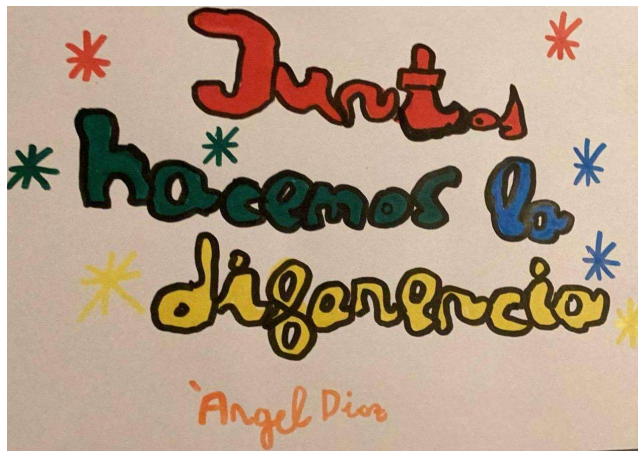 Juntos
hacemos la
diferencia
Àngel Díaz